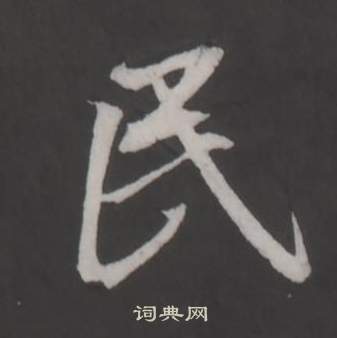 民
词典网